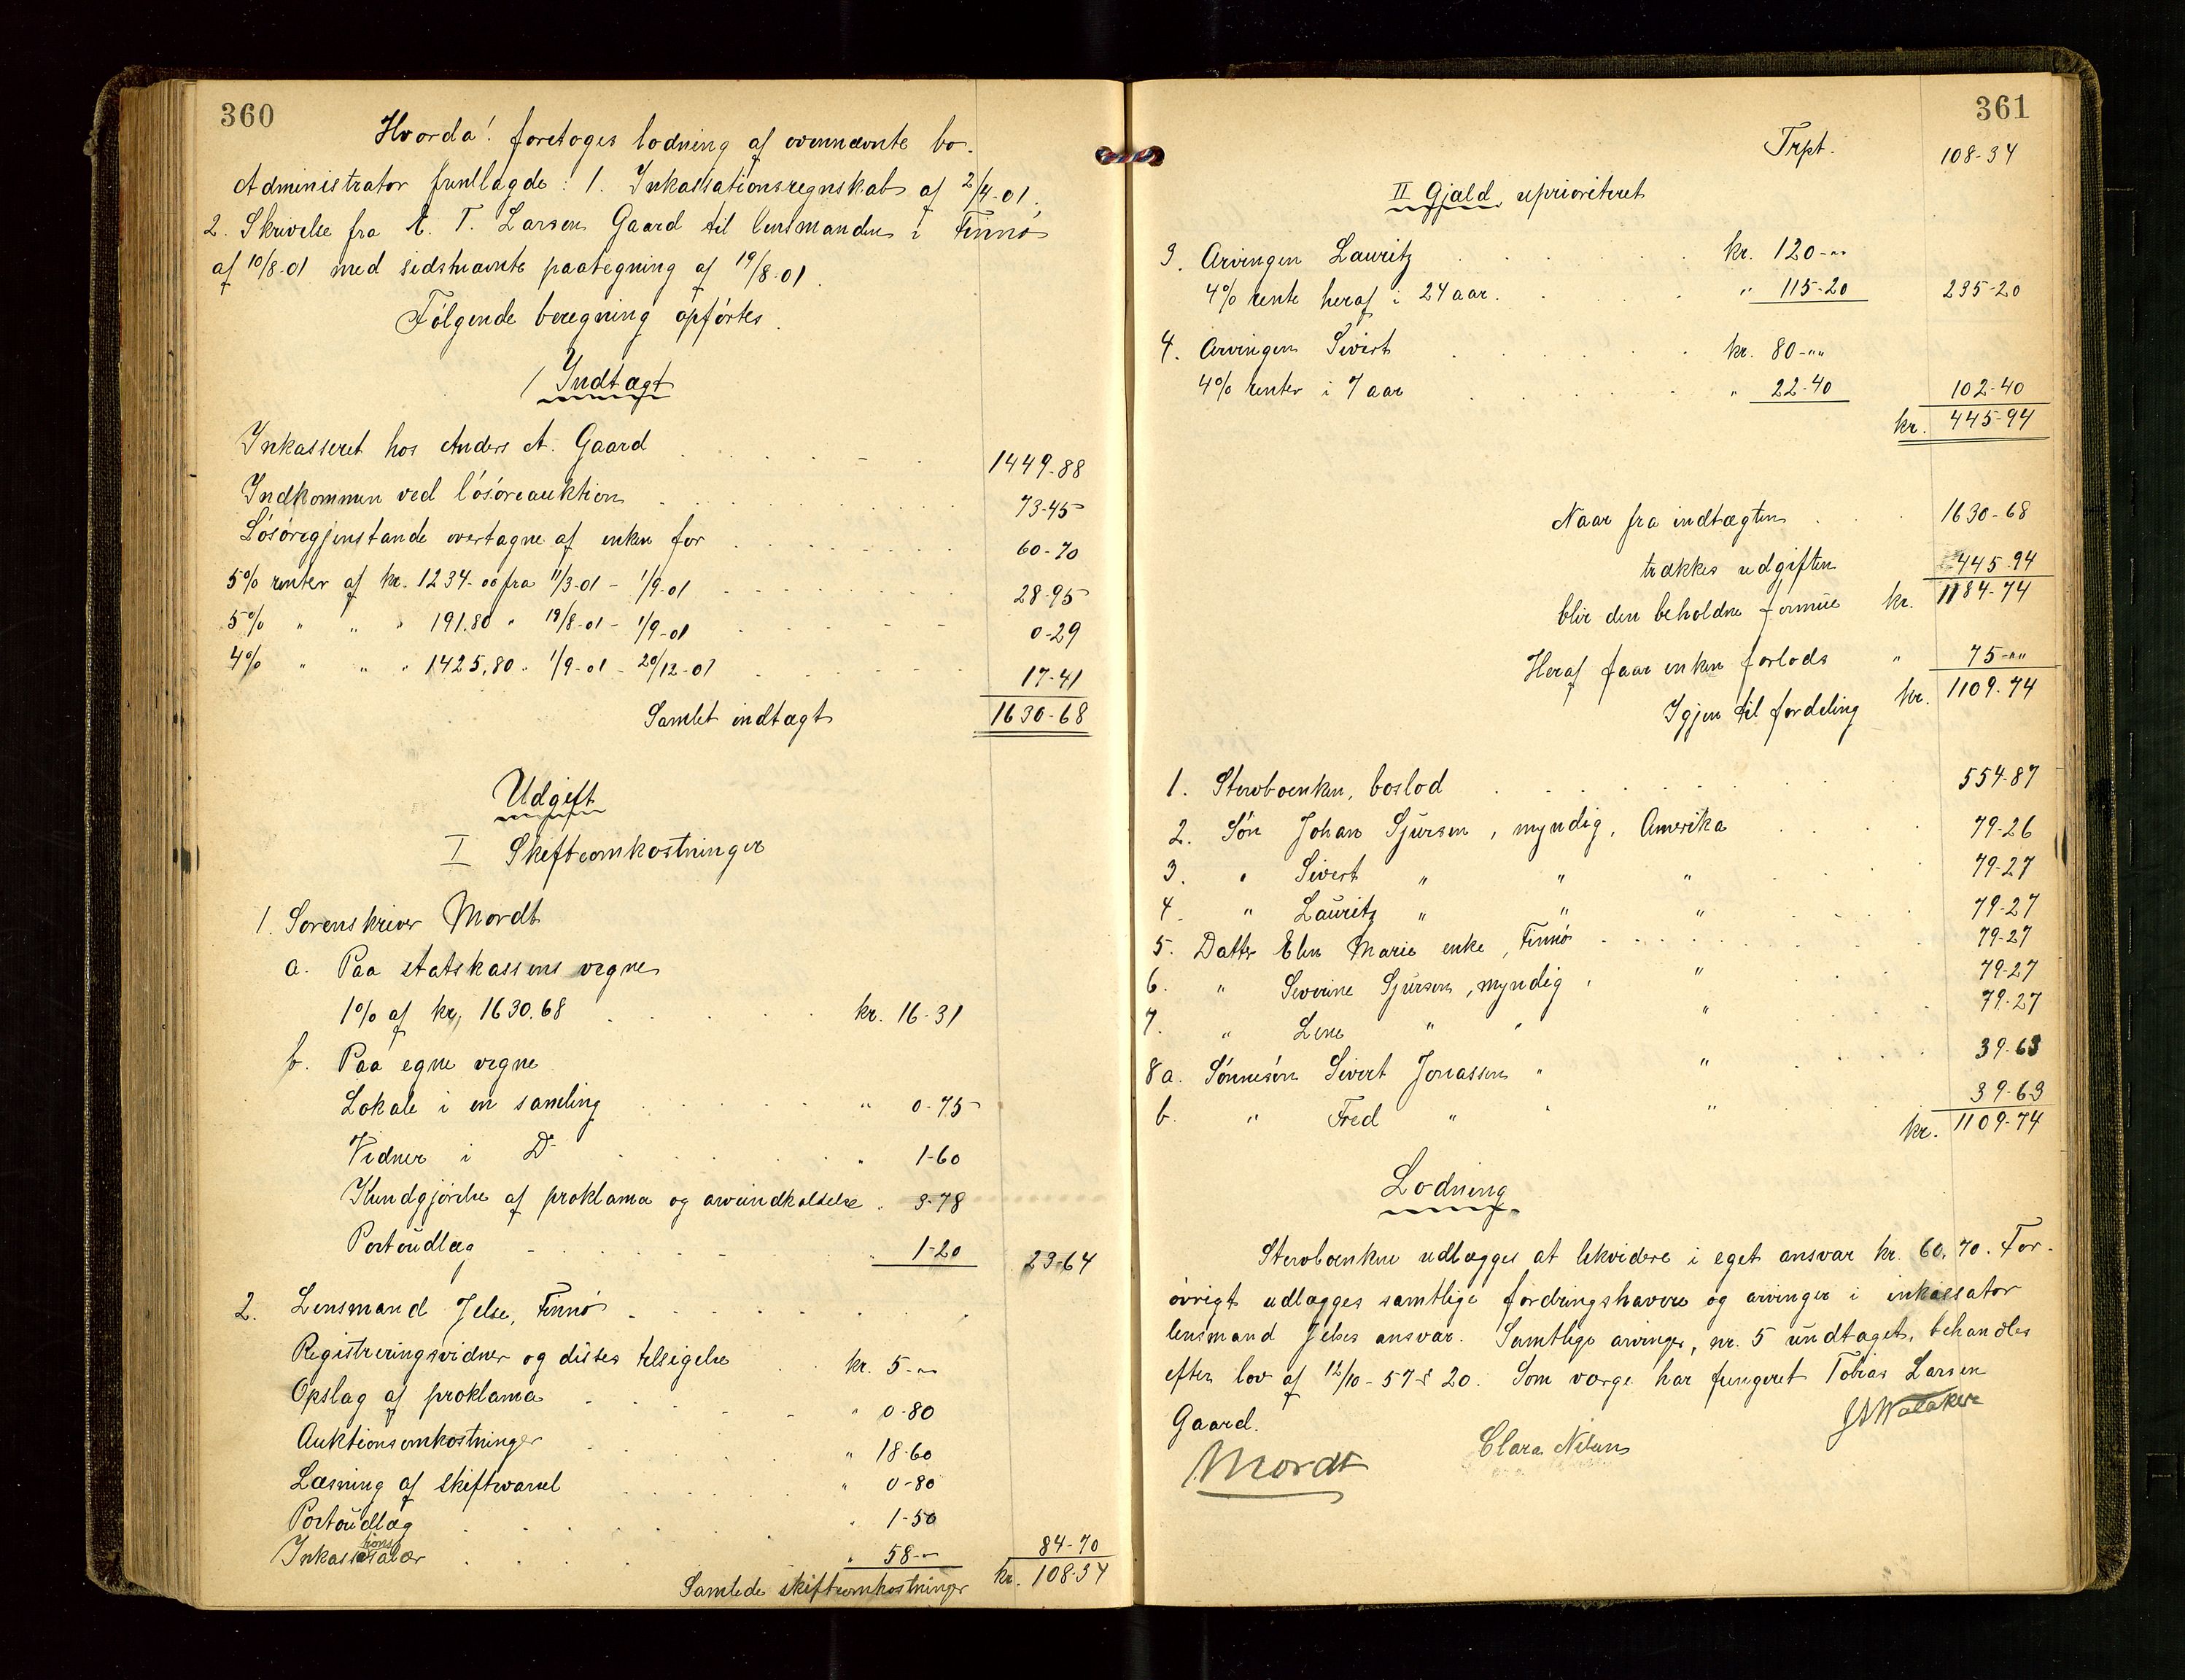 360
Hvorda! foretoges lodning af ovennævnte bo.
Administrator fremlagde: 1. Inkassationsregnskab af 2/4-01;
2. Skrivelse fra A. T. Larsen Gaard til lensmanden i Finnø
af 10/8-01 med sidstnævnte paategning af 19/8-01.
Følgende beregning opførtes.
Indtægt
Inkasseret hos Anders A. Gaard 1449-88
Indkommen ved løsøreauktion 73-45
Løsøregjenstande overtagne af enken for 60-70
5% renter af kr. 1234-00 fra 11/3-01 - 1/9-01 28-95
5% " " " 191.80 " 19/8-01 - 1/9-01 0-29
4% " " " 1425,80 " 1/9-01 - 20/12-01 17-41
Samlet indtægt 1630-68
Udgift
I Skifteomkostninger
1. Sorenskriver Mordt
a. Paa statskassens vegne
1% af kr. 1630.68 kr. 16-31
b. Paa egne vegne
Lokale i en samling " 0-75
Vidner i Do " 1-60
Kundgjørelse af proklama og arveindkaldelse " 3-78
Portoudlæg " 1-20 23-64
2. Lensmand Jelse, Finnø
Registreringsvidner og disses tilsigelse kr. 5-"
Opslag af proklama " 0-80
Auktionsomkostninger " 18-60
Læsning af skiftevarsel " 0-80
Portoudlæg " 1-50
Inkassationssalær " 58-" 84-70
Samlede skifteomkostninger kr. 108-34
361
Trpt. 108-34
II Gjæld, uprioriteret
3. Arvingen Lauritz kr. 120-""
4% rente heraf i 24 aar " 115-20 235-20
4. Arvingen Sivert kr. 80-""
4% renter i 7 aar " 22-40 102-40
kr. 445-94
Naar fra indtægten 1630-68
trækkes udgiften 445-94
blir den beholdne formue kr. 1184-74
Heraf faar enken forlods " 75-""
Igjen til fordeling kr. 1109-74
1. Stervboenken, boslod 554-87
2. Søn Johan Sjursen, myndig, Amerika 79-26
3. " Sivert " " " 79-27
4. " Lauritz " " " 79-27
5. Datter Elen Marie enke, Finnø 79-27
6. " Severine Sjursen, myndig, " 79-27
7. " Lene " " " 79-27
8a. Sønnesøn Sivert Jonassen " " 39-63
b. " Fred " " " 39-63
kr. 1109-74
Lodning
Stervboenken udlægges at likvidere i eget ansvar kr. 60,70. For-
øvrigt udlægges samtlige fordringshavere og arvinger i inkassator
lensmand Jelses ansvar. Samtlige arvinger, nr. 5 undtaget, behandles
efter lov af 12/10-57 § 20. Som verge har fungeret Tobias Larsen
Gaard.
Mordt Clara Nilsen